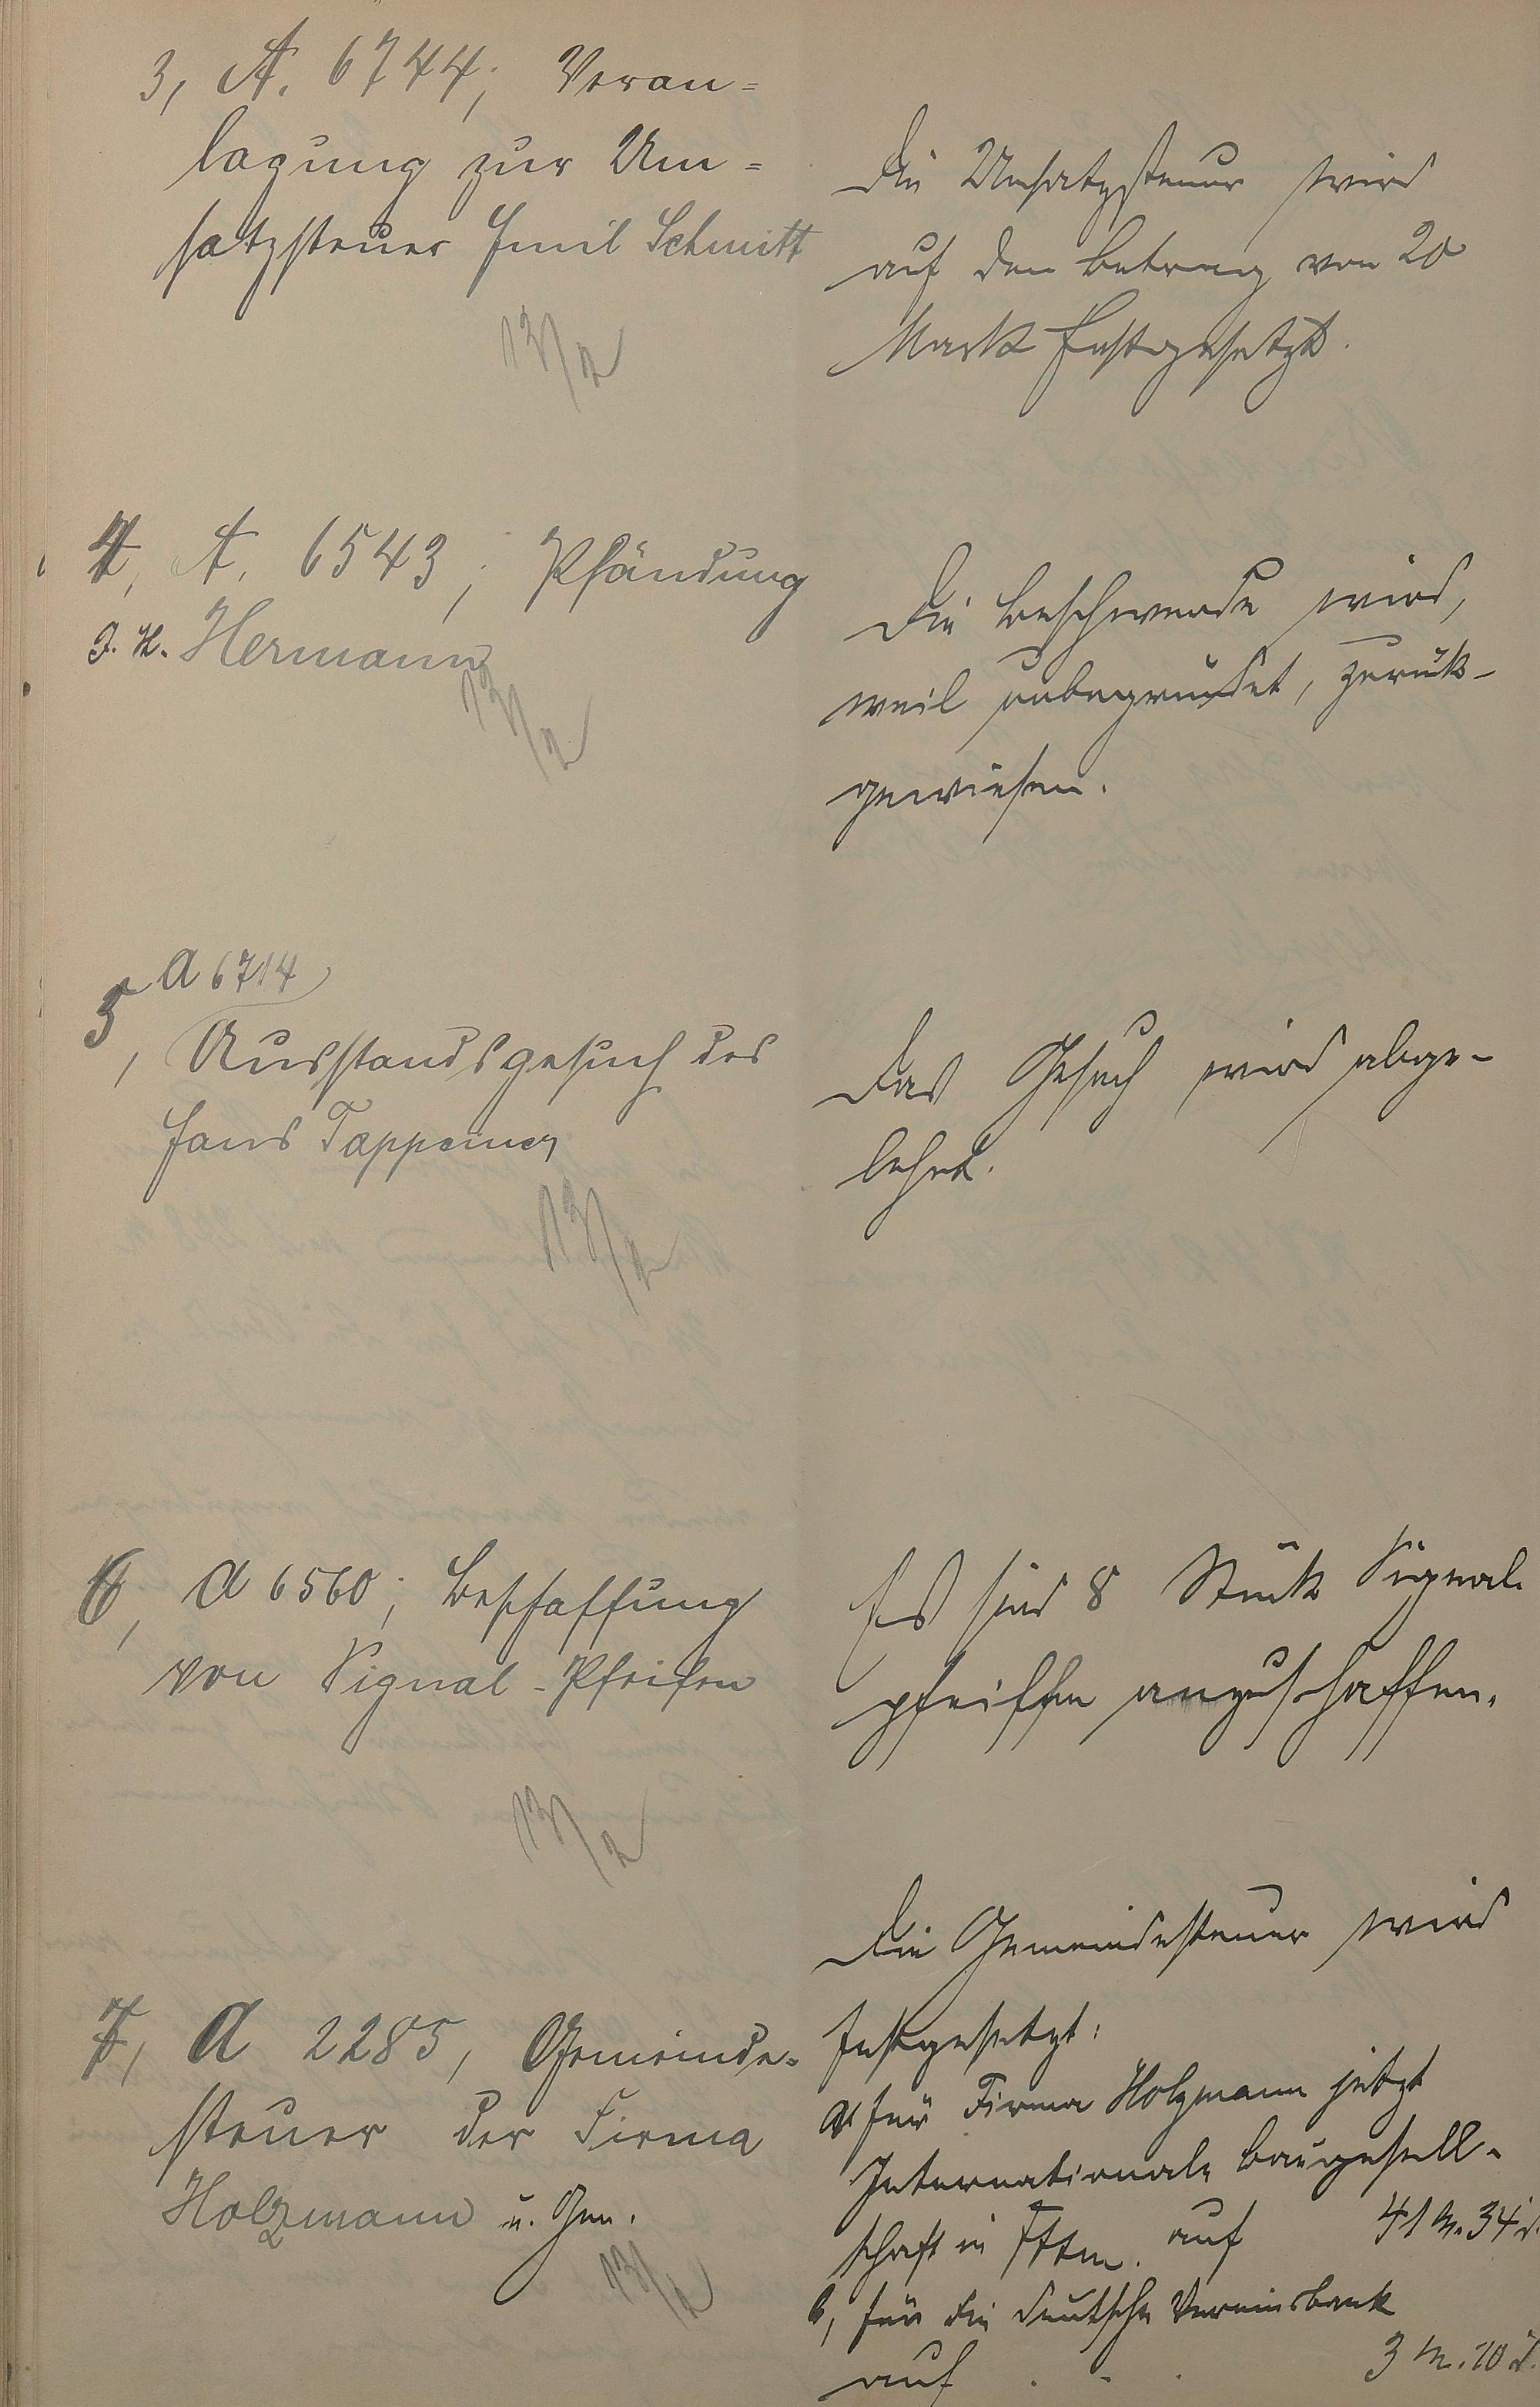 3, A. 6744; Veran=
lagung zur Um=
satzsteuer Emil Schmitt
13/2
Die Umsatzsteuer wird
auf den Betrag von 20
Mark festgesetzt.
4, A. 6543; Pfändung
J. H. Hermann
13/2
Die Beschwerde wird,
weil unbegründet, zurük-
gewiesen.
A 6714
5, Ausstandsgesuch des
Hans Tappeiner
13/2
Das Gesuch wird abge-
lehnt.
6, A 6560; Beschaffung
von Signal-Pfeifen
13/2
Es sind 8 Stück Signal
pfeiffen anzuschaffen.
7, A 2285, Gemeinde=
steuer der Firma
Holzmann u. Gen.
13/2
Die Gemeindesteuer wird
festgesetzt:
a, für Firma Holzmann jetzt
Internationale Baugesell-
schaft in Fftm. auf 41 M. 34 d.
b, für die deutsche Vereinsbank
auf . . . 3 M. 10 d.